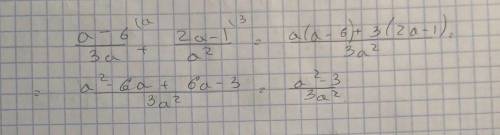 (a - 6)/(3a) \a + (2a - 1)/(a²) \3 = (a(a - 6) + 3(2a - 1))/(3a²) =
= (a² - 6a + 6a - 3)/(3a²) = (a² - 3)/(3a²)